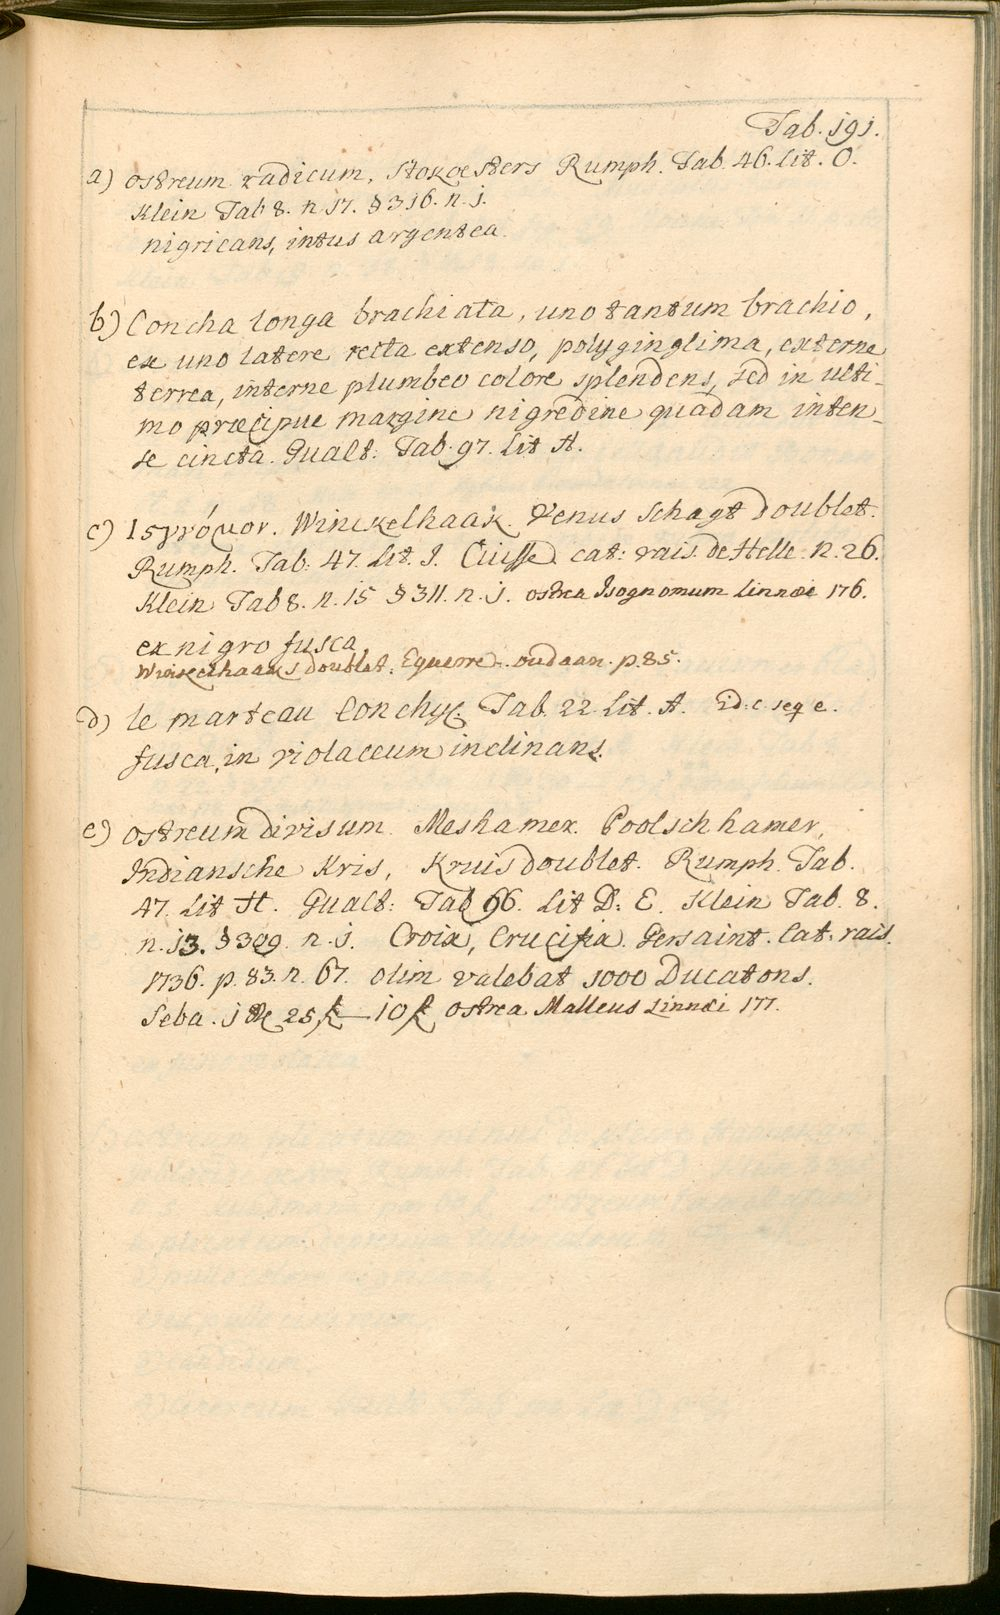 Tab. 191.
a) ostreum radicum, Stokoesters Rumph. Tab. 46. Lit. O.
Klein Tab 8. n. 17. § 316. n. j.
nigricans, intus argentea.
b) Concha longa brachiata, uno tantum brachio,
ex uno latere recta extenso, polyginglima, externe
terrea, interne plumbeo colore splendens, sed in ulti-
mo præcipue margine nigredine quadam inten-
se cincta. Gualt: Tab. 97. Lit A.
c) Winckelhaak. Venus Schagt doublet.
Rumph. Tab. 47. Lit. I. Cuisse cat: rais. de Helle n. 26.
Klein Tab 8. n. 15 § 311. n. j. ostrea Isognomum Linnæi 176.
ex nigro fusca
Winkelhaaks doublet. Equerre. oudaan. p. 85.
d) le marteau Conchyl. Tab. 22 Lit. A. Id. c. seq e.
fusca, in violaceum inclinans.
e) ostreum divisum. Meshamer. Poolsch hamer,
Indiansche Kris, Kruisdoublet. Rumph. Tab.
47. Lit H. Gualt: Tab 96. Lit D: E. Klein Tab. 8.
n. 13. § 309. n. j. Croix, Crucifix. Gersaint. Cat: rais.
1736. p. 83. n. 67. olim valebat 1000 Ducatons.
Seba. 25 — 10 ostrea Malleus Linnæi 177.